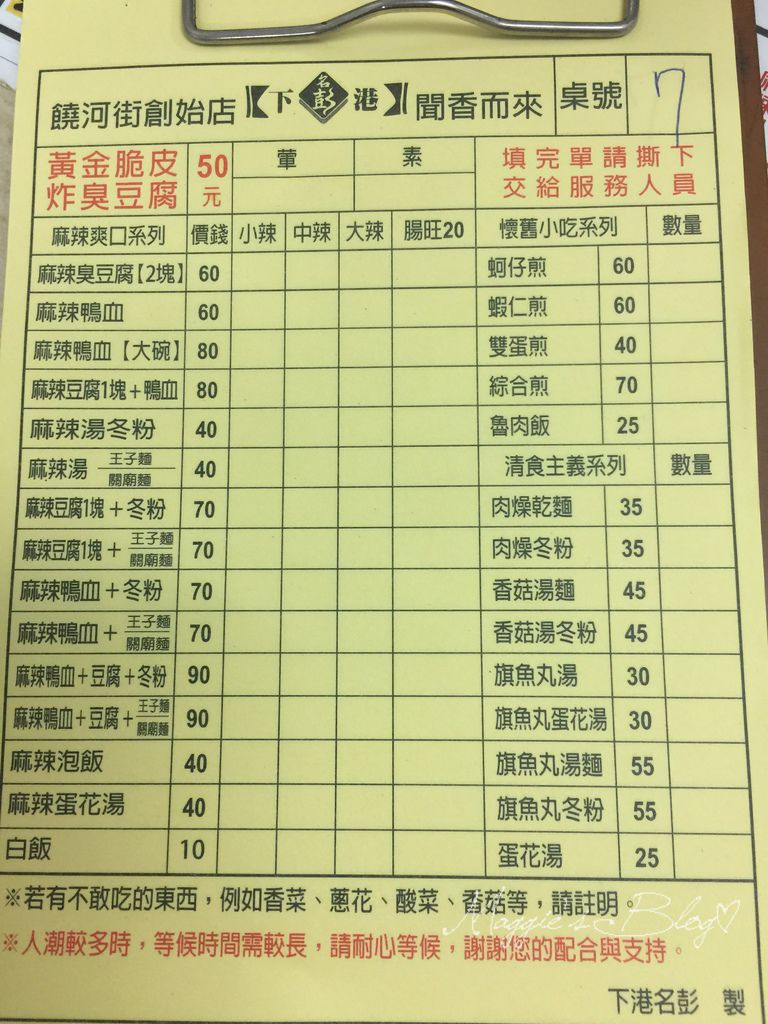 饒河街創始店【下 名彭 港】聞香而來 桌號 7
黃金脆皮炸臭豆腐 50元 葷 素 填完單請撕下
交給服務人員
麻辣爽口系列 價錢 小辣 中辣 大辣 腸旺20 懷舊小吃系列 數量
麻辣臭豆腐【2塊】 60 蚵仔煎 60
麻辣鴨血 60 蝦仁煎 60
麻辣鴨血【大碗】 80 雙蛋煎 40
麻辣豆腐1塊+鴨血 80 綜合煎 70
麻辣湯冬粉 40 魯肉飯 25
麻辣湯 王子麵 關廟麵 40 清食主義系列 數量
麻辣豆腐1塊+冬粉 70 肉燥乾麵 35
麻辣豆腐1塊+ 王子麵 關廟麵 70 肉燥冬粉 35
麻辣鴨血+冬粉 70 香菇湯麵 45
麻辣鴨血+ 王子麵 關廟麵 70 香菇湯冬粉 45
麻辣鴨血+豆腐+冬粉 90 旗魚丸湯 30
麻辣鴨血+豆腐+ 王子麵 關廟麵 90 旗魚丸蛋花湯 30
麻辣泡飯 40 旗魚丸湯麵 55
麻辣蛋花湯 40 旗魚丸冬粉 55
白飯 10 蛋花湯 25
※若有不敢吃的東西，例如香菜、蔥花、酸菜、香菇等，請註明。
Maggie's Blog♡
※人潮較多時，等候時間需較長，請耐心等候，謝謝您的配合與支持。
下港名彭 製